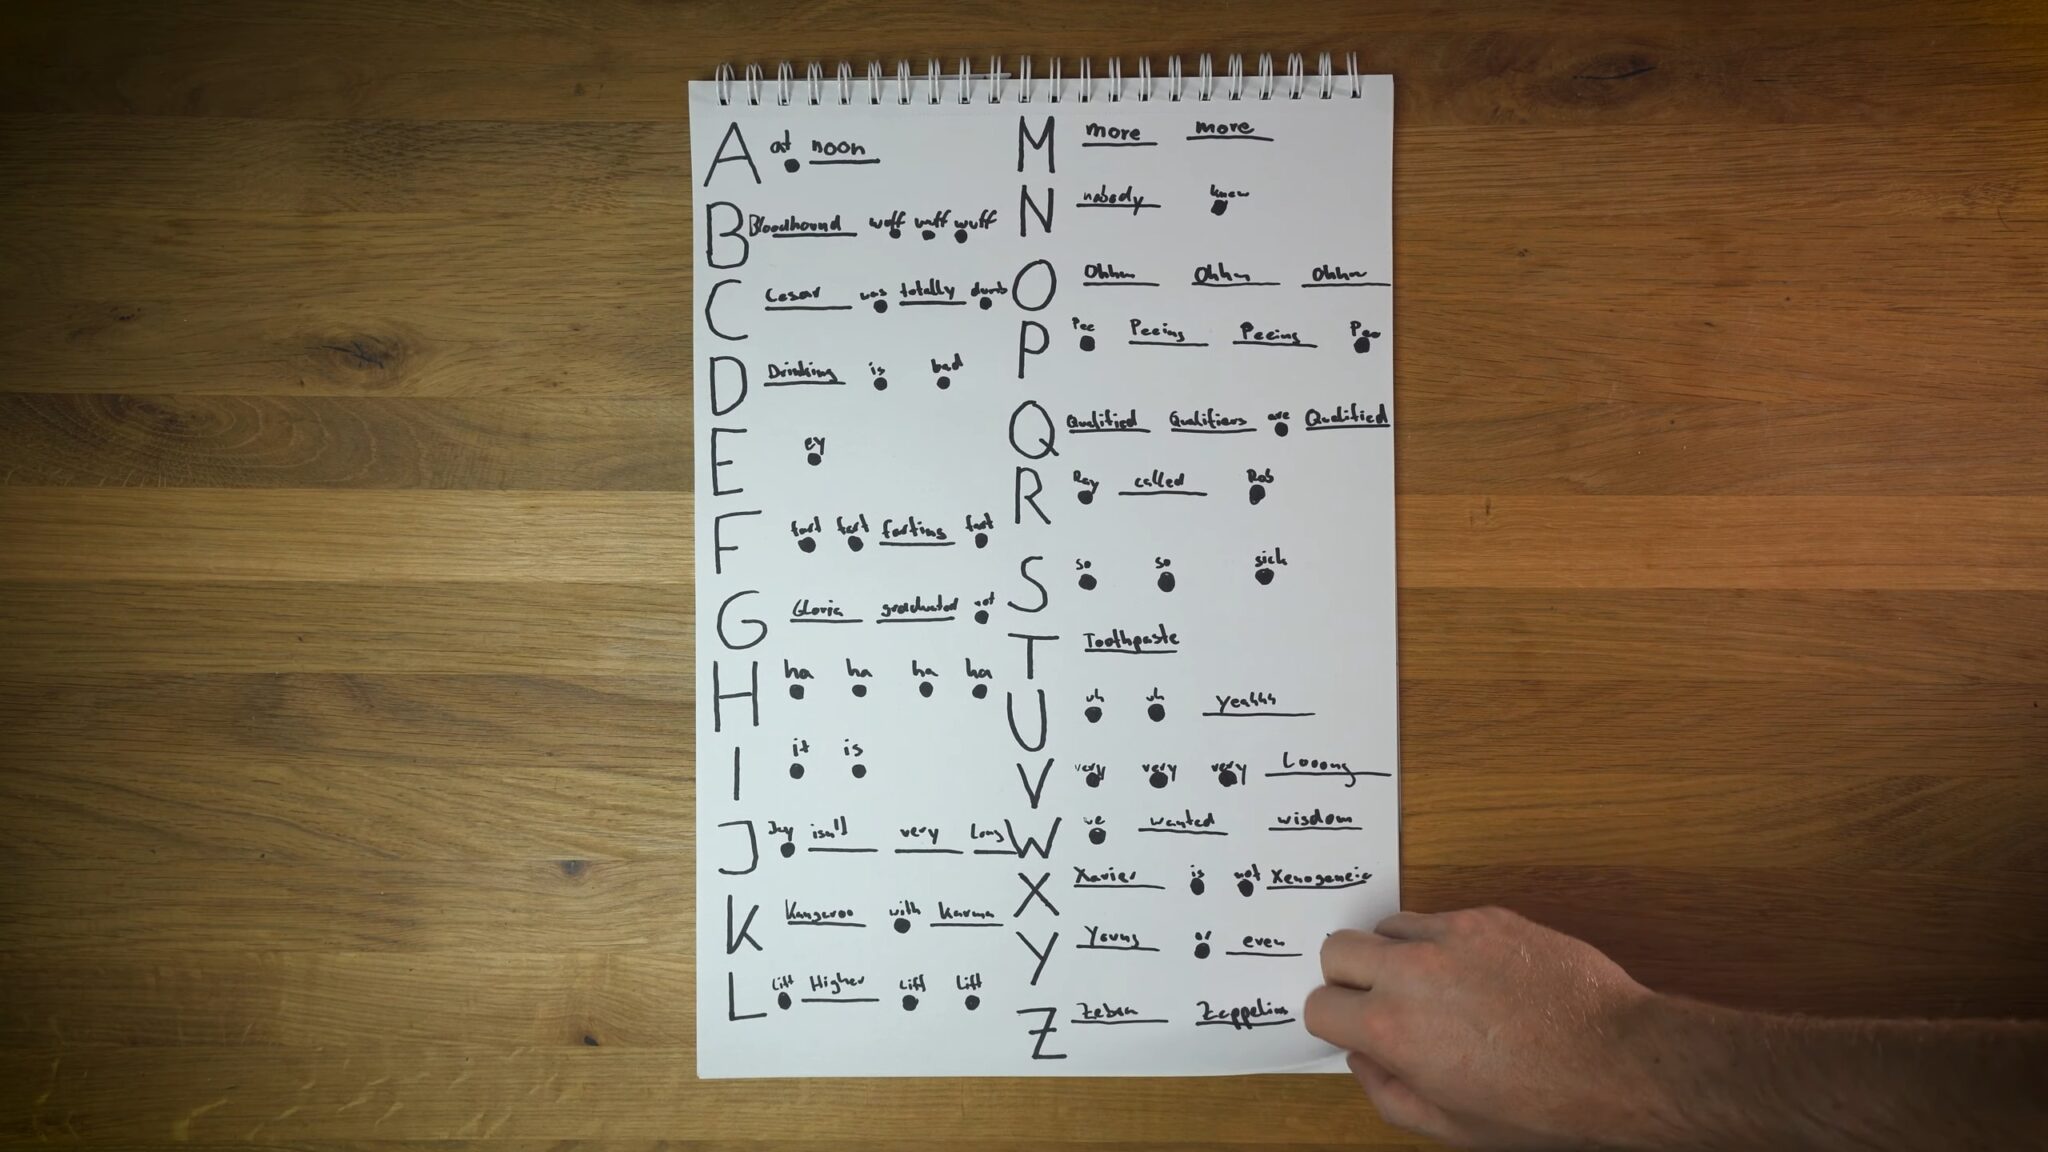 A at noon
B Bloodhound wuff wuff wuff
C Cesar was totally dumb
D Drinking is bad
E ey
F fart fart farting fart
G Gloria graduated not
H ha ha ha ha
I it is
J Jay isn't very Long
K Kangaroo with Karma
L Lift Higher Lift Lift
M more more
N nobody knew
O Ohhm Ohhm Ohhm
P Pee Peeing Peeing Pee
Q Qualified Qualifiers are Qualified
R Ray called Rob
S so so sick
T Toothpaste
U uh uh yeahhh
V very very very Looong
W we wanted wisdom
X Xavier is not Xenogeneic
Y Young or even
Z Zebra Zeppelin